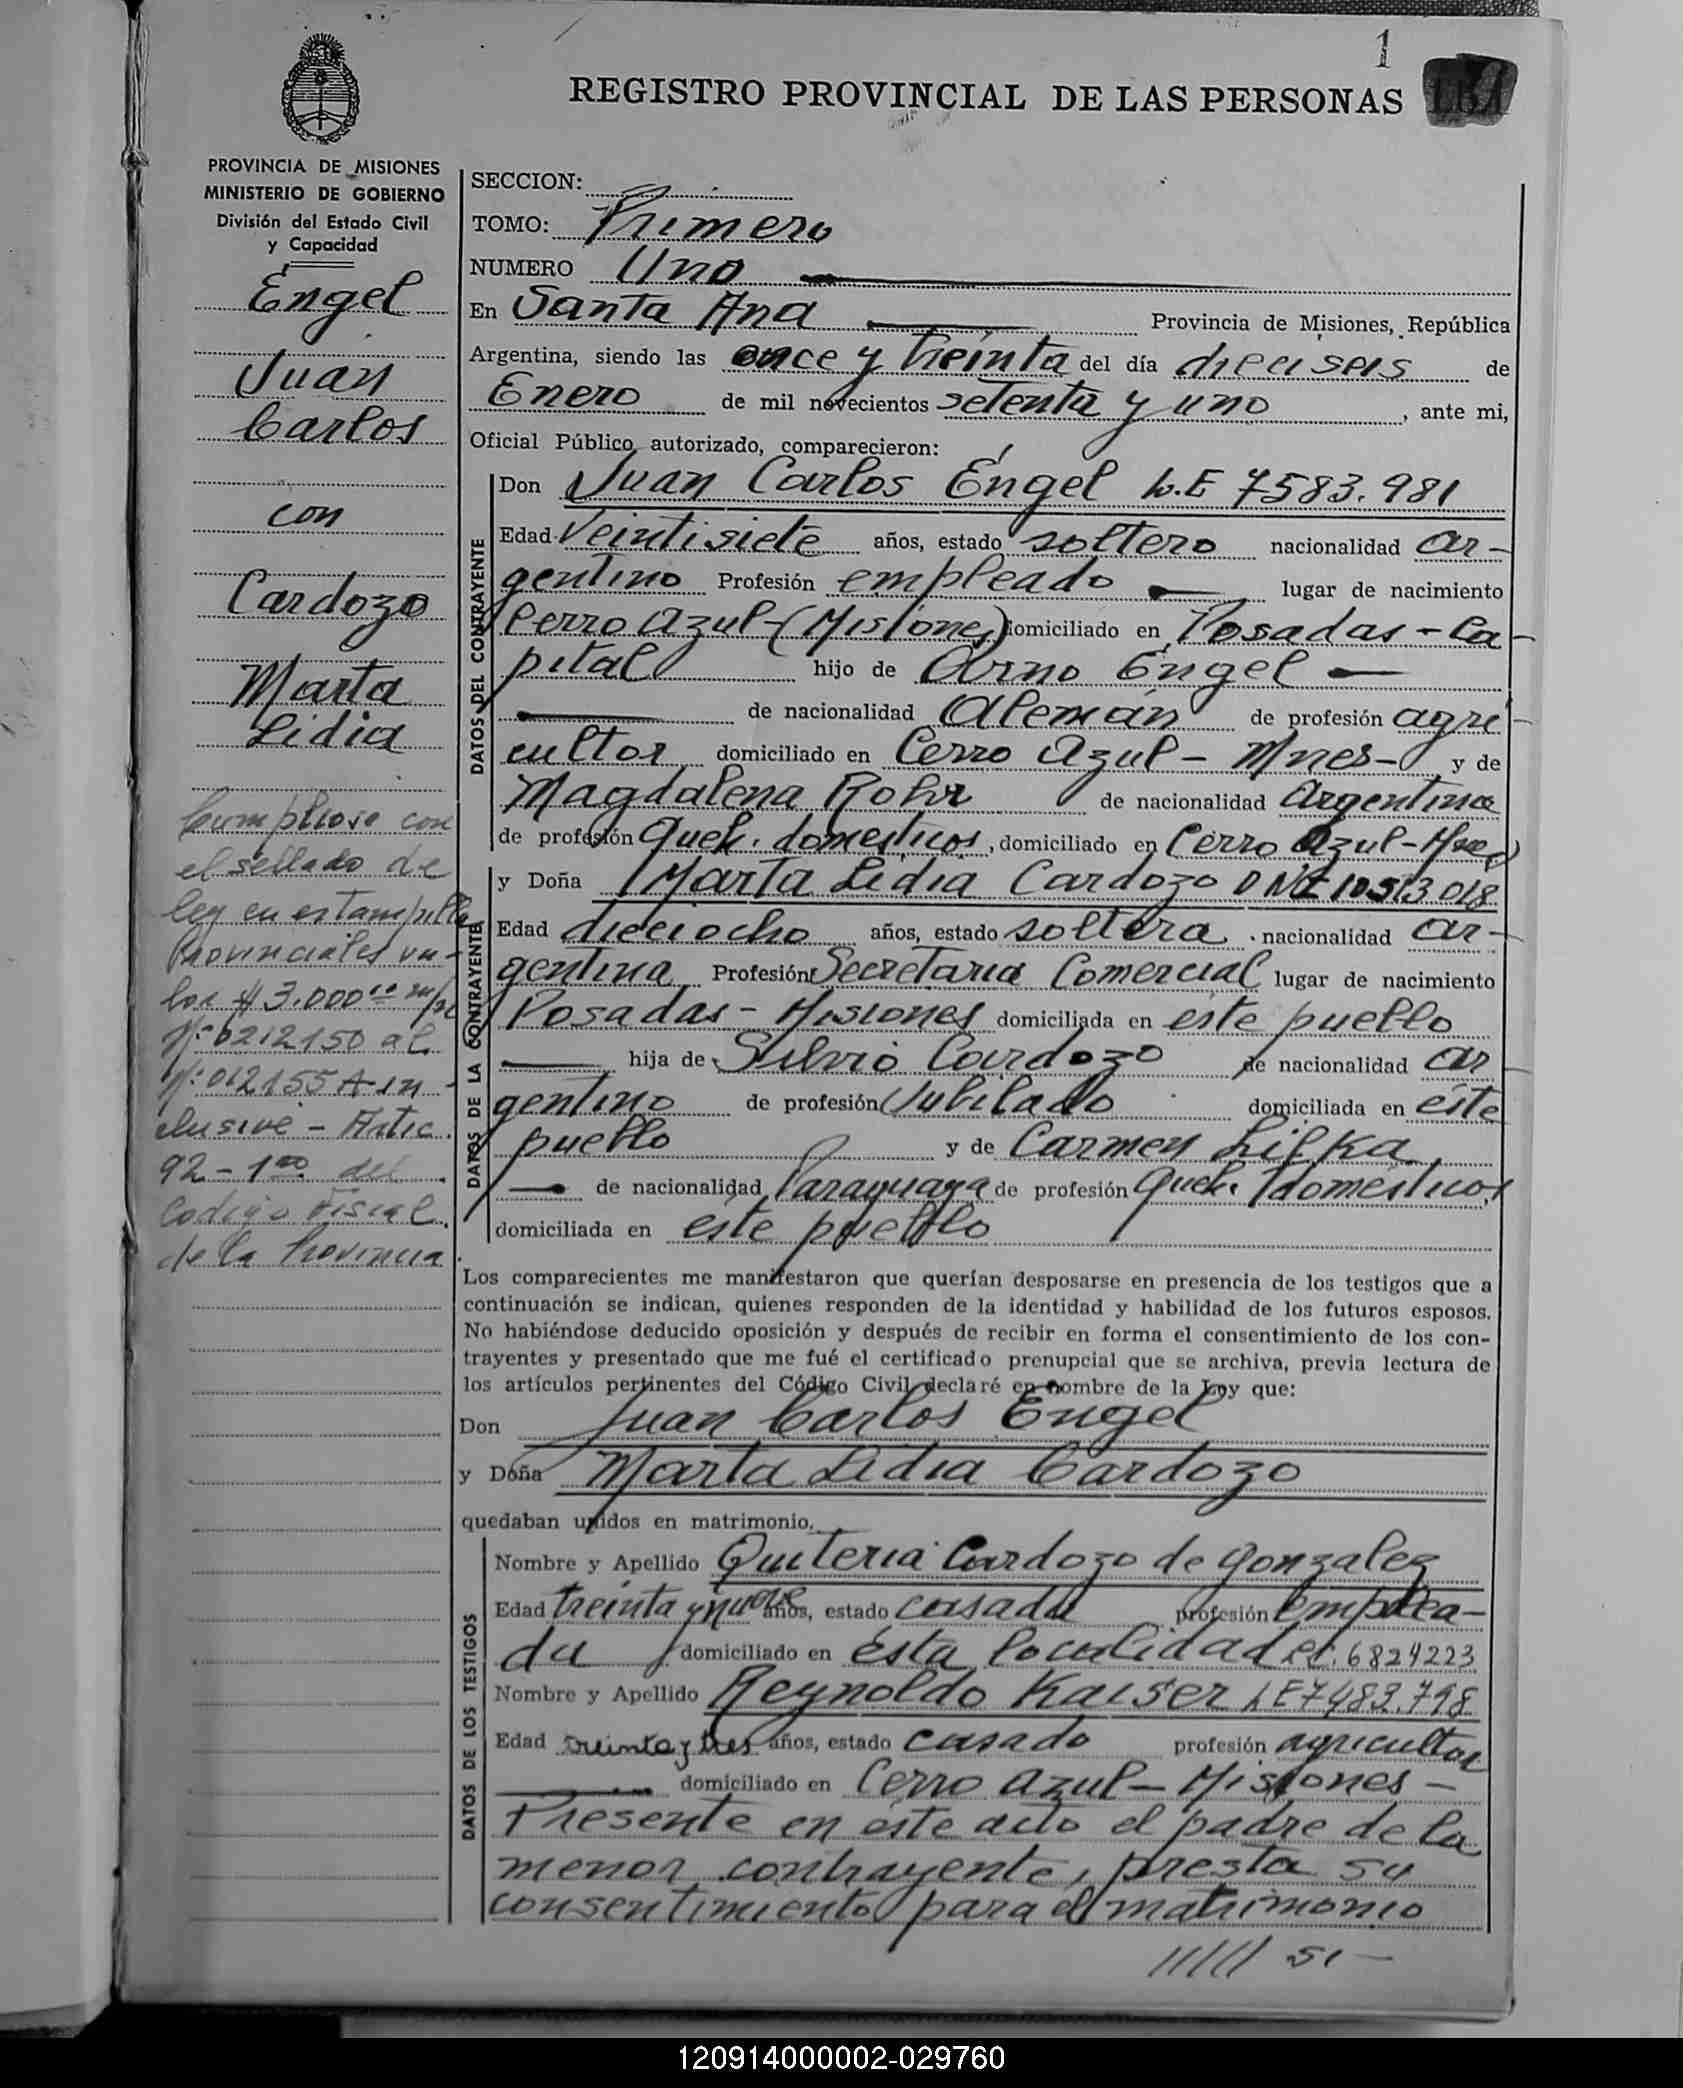 1
REGISTRO PROVINCIAL DE LAS PERSONAS
PROVINCIA DE MISIONES
MINISTERIO DE GOBIERNO
División del Estado Civil
y Capacidad
Engel
Juan
Carlos
con
Cardozo
Marta
Lidia
Cumpliose con
el sellado de
ley en estampilla
Provinciales va-
lor $ 3.000.00 m/n
Nº: 0212150 al
Nº: 012155 A-in
clusive - Artic.
92 - 1ro del
Codigo Fiscal
de la Provincia
SECCION:
TOMO: Primero
NUMERO Uno
En Santa Ana Provincia de Misiones, República
Argentina, siendo las once y treinta del día dieciseis de
Enero de mil novecientos setenta y uno, ante mi,
Oficial Público autorizado, comparecieron:
DATOS DEL CONTRAYENTE
Don Juan Carlos Engel L.E 7583.981
Edad Veintisiete años, estado soltero nacionalidad ar-
gentino Profesión empleado lugar de nacimiento
Cerro Azul-(Misiones) domiciliado en Posadas - Ca-
pital hijo de Arno Engel
de nacionalidad Alemán de profesión agri-
cultor domiciliado en Cerro Azul - Mnes - y de
Magdalena Rohr de nacionalidad Argentina
de profesión Queh. domesticos, domiciliado en Cerro Azul-Mnes
DATOS DE LA CONTRAYENTE
y Doña Marta Lidia Cardozo DNI 10513018
Edad dieciocho años, estado soltera nacionalidad ar-
gentina Profesión Secretaria Comercial lugar de nacimiento
Posadas - Misiones domiciliada en este pueblo
hija de Silvio Cardozo de nacionalidad ar
gentino de profesión Jubilado domiciliada en este
pueblo y de Carmen Lilka
de nacionalidad Paraguaya de profesión Queh. domesticos,
domiciliada en este pueblo
Los comparecientes me manifestaron que querían desposarse en presencia de los testigos que a
continuación se indican, quienes responden de la identidad y habilidad de los futuros esposos.
No habiéndose deducido oposición y después de recibir en forma el consentimiento de los con-
trayentes y presentado que me fué el certificado prenupcial que se archiva, previa lectura de
los artículos pertinentes del Código Civil declaré en nombre de la Ley que:
Don Juan Carlos Engel
y Doña Marta Lidia Cardozo
quedaban unidos en matrimonio.
DATOS DE LOS TESTIGOS
Nombre y Apellido Quiteria Cardozo de Gonzalez
Edad treinta y nueve años, estado casada profesión Emplea-
da domiciliado en esta localidad LC. 6824223
Nombre y Apellido Reynoldo Kaiser LE 7483.798
Edad treinta y tres años, estado casado profesión agricultor
domiciliado en Cerro Azul - Misiones -
Presente en este acto el padre de la
menor contrayente, presta su
consentimiento para el matrimonio
///// si -
120914000002-029760